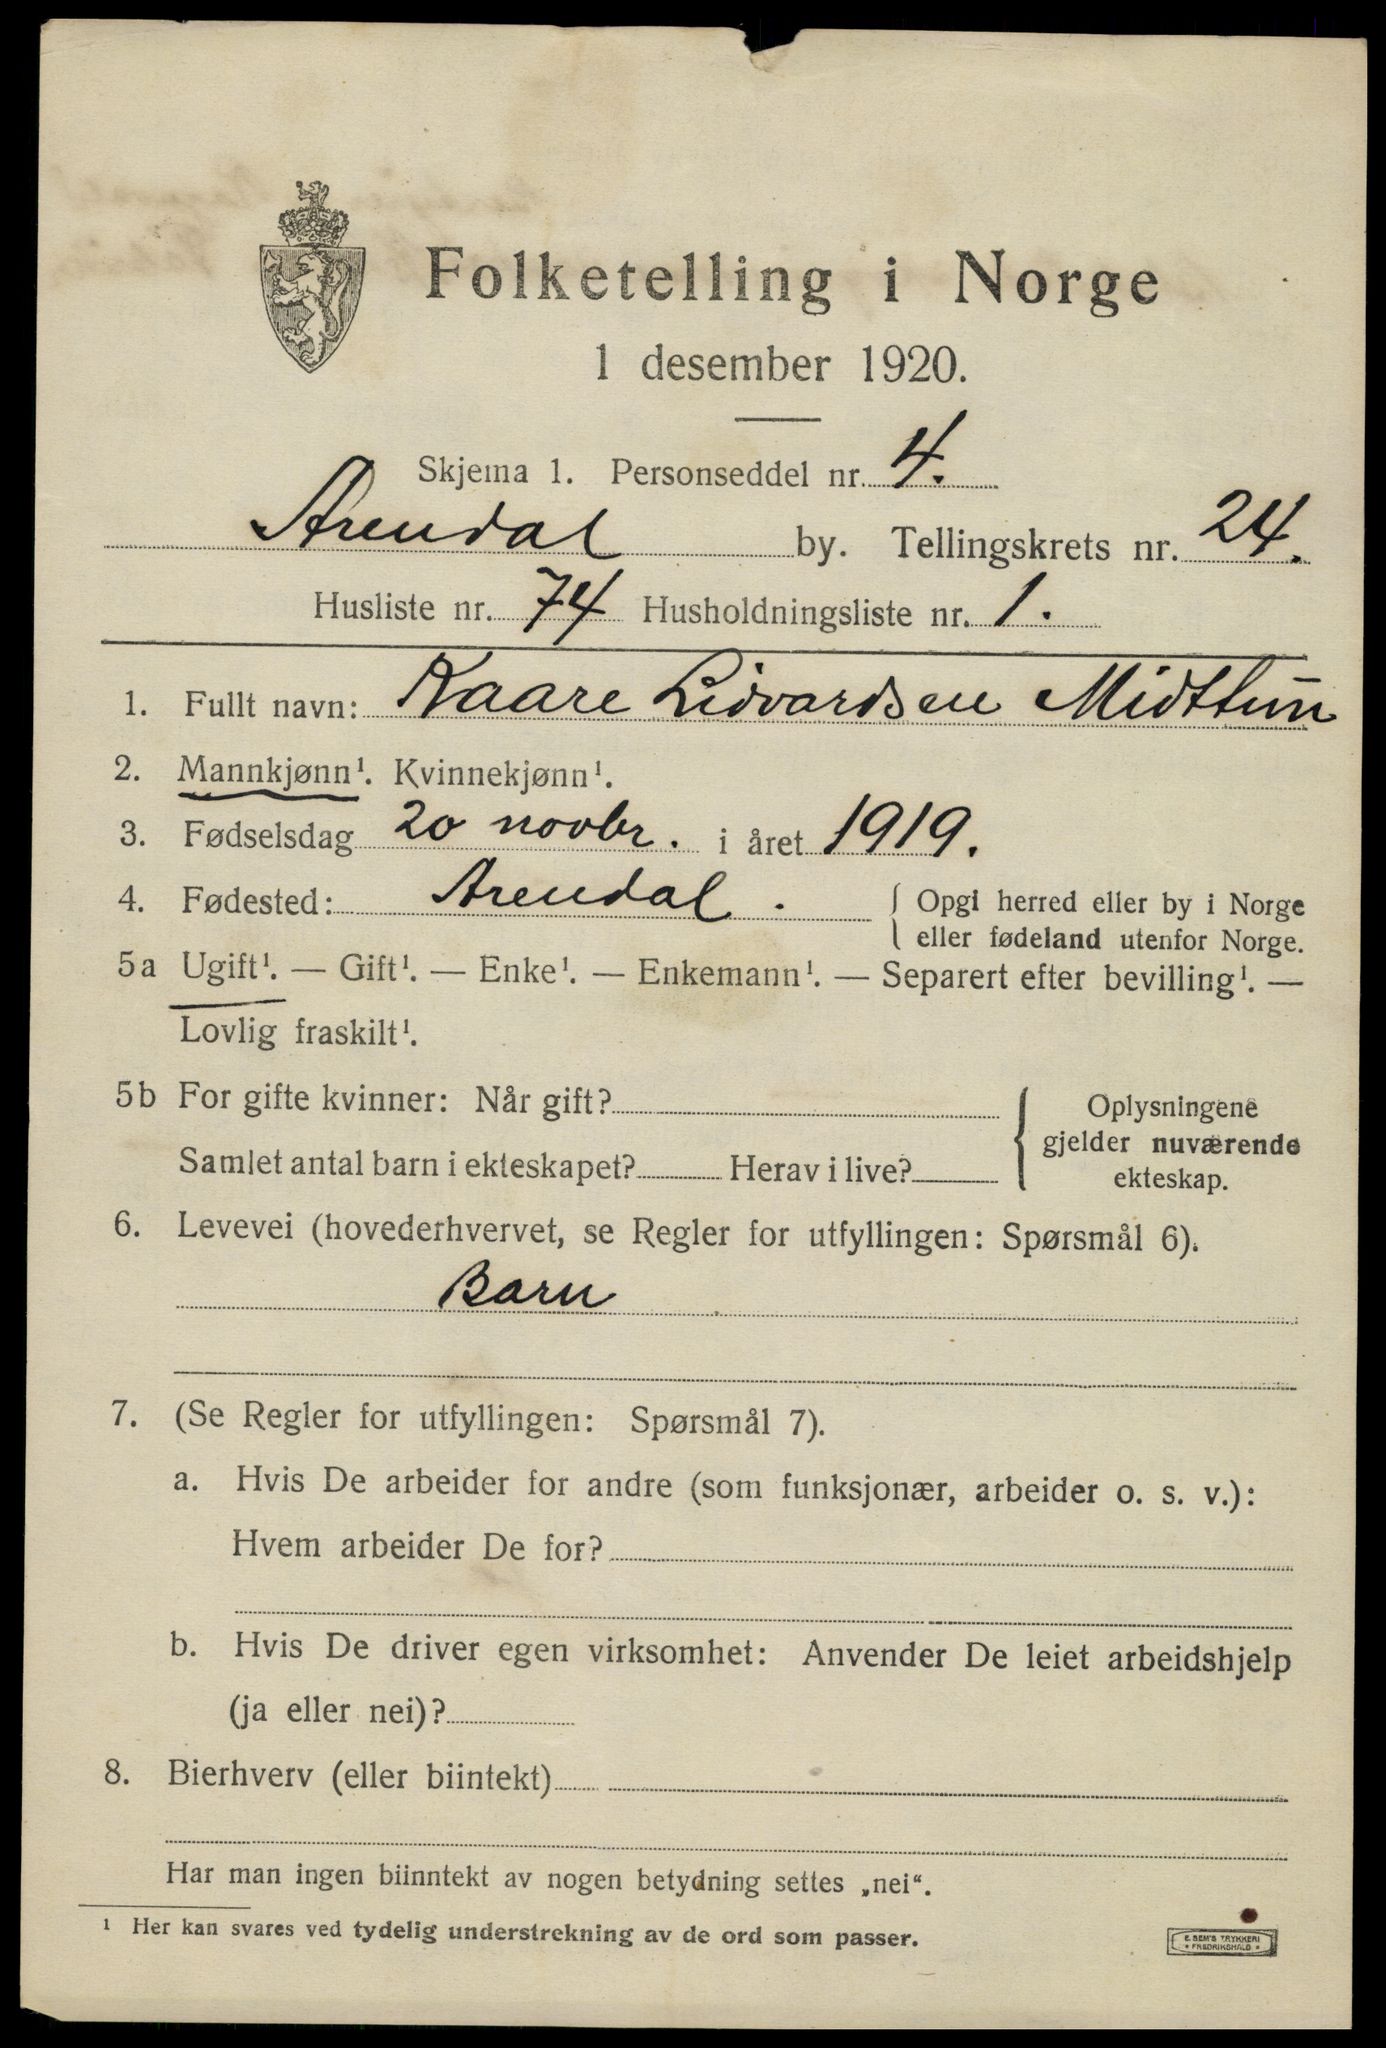 Folketelling i Norge
1 desember 1920.
Skjema 1. Personseddel nr. 4.
Arendal by. Tellingskrets nr. 24.
Husliste nr. 74 Husholdningsliste nr. 1.
1. Fullt navn: Kaare Lidvardsen Midttun
2. Mannkjønn¹. Kvinnekjønn¹.
3. Fødselsdag 20 novbr. i året 1919.
4. Fødested: Arendal. { Opgi herred eller by i Norge
eller fødeland utenfor Norge.
5a Ugift¹. — Gift¹. — Enke¹. — Enkemann¹. — Separert efter bevilling¹. —
Lovlig fraskilt¹.
5b For gifte kvinner: Når gift?
Samlet antal barn i ekteskapet? Herav i live?
{ Oplysningene
gjelder nuværende
ekteskap.
6. Levevei (hovederhvervet, se Regler for utfyllingen: Spørsmål 6).
Barn
7. (Se Regler for utfyllingen: Spørsmål 7).
a. Hvis De arbeider for andre (som funksjonær, arbeider o. s. v.):
Hvem arbeider De for?
b. Hvis De driver egen virksomhet: Anvender De leiet arbeidshjelp
(ja eller nei)?
8. Bierhverv (eller biintekt)
Har man ingen biinntekt av nogen betydning settes „nei“.
¹ Her kan svares ved tydelig understrekning av de ord som passer.
E. SEM'S TRYKKERI
* FREDRIKSHALD *